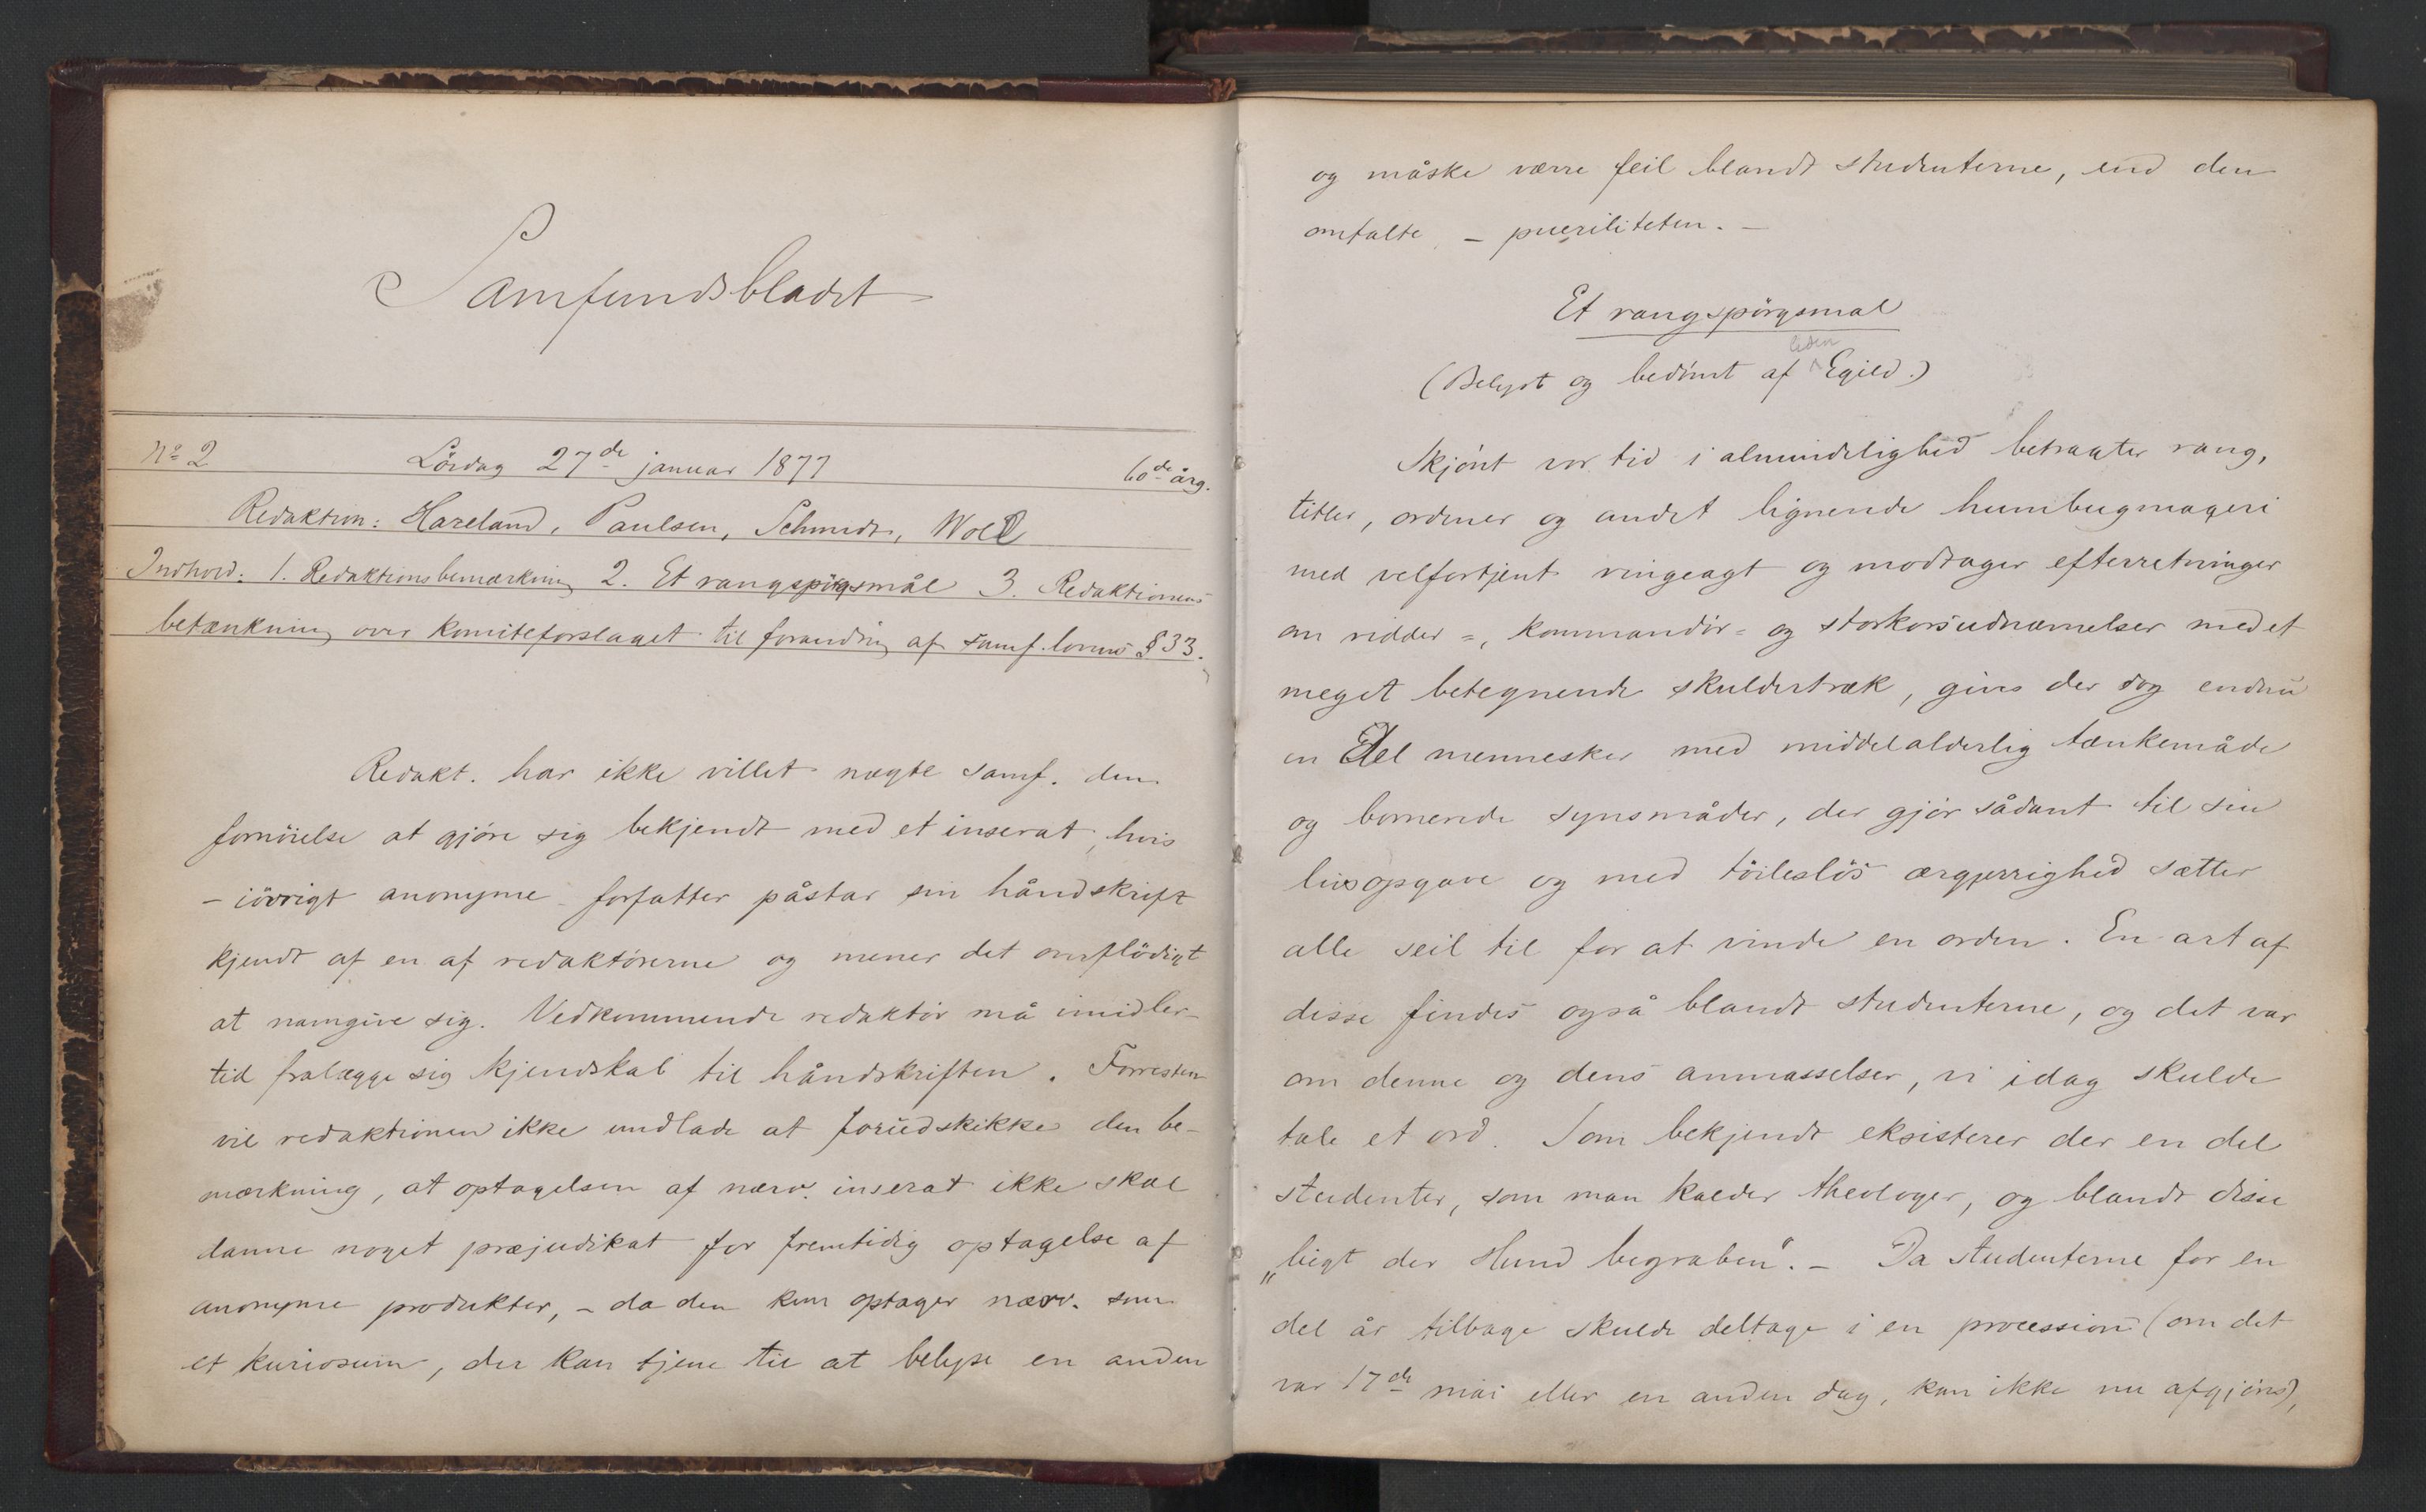 Samfundsbladet
No 2 Lördag 27de januar 1877 60de årg.
Redaktion: Hareland, Paulsen, Schmidt, Woll
Indhold: 1. Redaktionsbemærkning 2. Et rangspörgsmål 3. Redaktionens
betænkning over komiteforslaget til forandring af samf. lovens § 33.
Redakt. har ikke villet nægte samf. den
fornöielse at gjöre sig bekjendt med et inserat, hvis
– iövrigt anonyme – forfatter påstar sin håndskrift
kjendt af en af redaktörerne og mener det overflödigt
at navngive sig. Vedkommende redaktör må imidler-
tid fralægge sig kjendskab til håndskriften. Forresten
vil redaktionen ikke undlade at forudskikke den be-
mærkning, at optagelsen af nærv. inserat ikke skal
danne noget præjudikat for fremtidig optagelse af
anonyme produkter, – da den kun optager nærv. som
et kuriosum, der kan tjene til at belyse en anden
og måske værre feil blandt studenterne, end den
omtalte – pueriliteten. –
Et rangspörgsmal
(Belyst og bedömt af liden Egild.)
Skjönt vor tid i almindelighed betragter rang,
titler, ordener og andet lignende humbugmageri
med velfortjent ringeagt og modtager efterretninger
om ridder=, kommandör= og storkorsudnævnelser med et
meget betegnende skuldertræk, gives der dog endnu
en Del mennesker med middelalderlig tænkemåde
og bornerede synsmåder, der gjör sådant til sin
livsopgave og med töileslös ærgjerrighed sætter
alle seil til for at vinde en orden. En art af
disse findes også blandt studenterne, og det var
om denne og dens anmasselser, vi idag skulde
tale et ord. Som bekjendt eksisterer der en del
studenter, som man kalder theologer, og blandt disse
„liegt der Hund begraben“. – Da studenterne for en
del år tilbage skulde deltage i en procession (om det
var 17de mai eller en anden dag, kan ikke nu afgjöres),